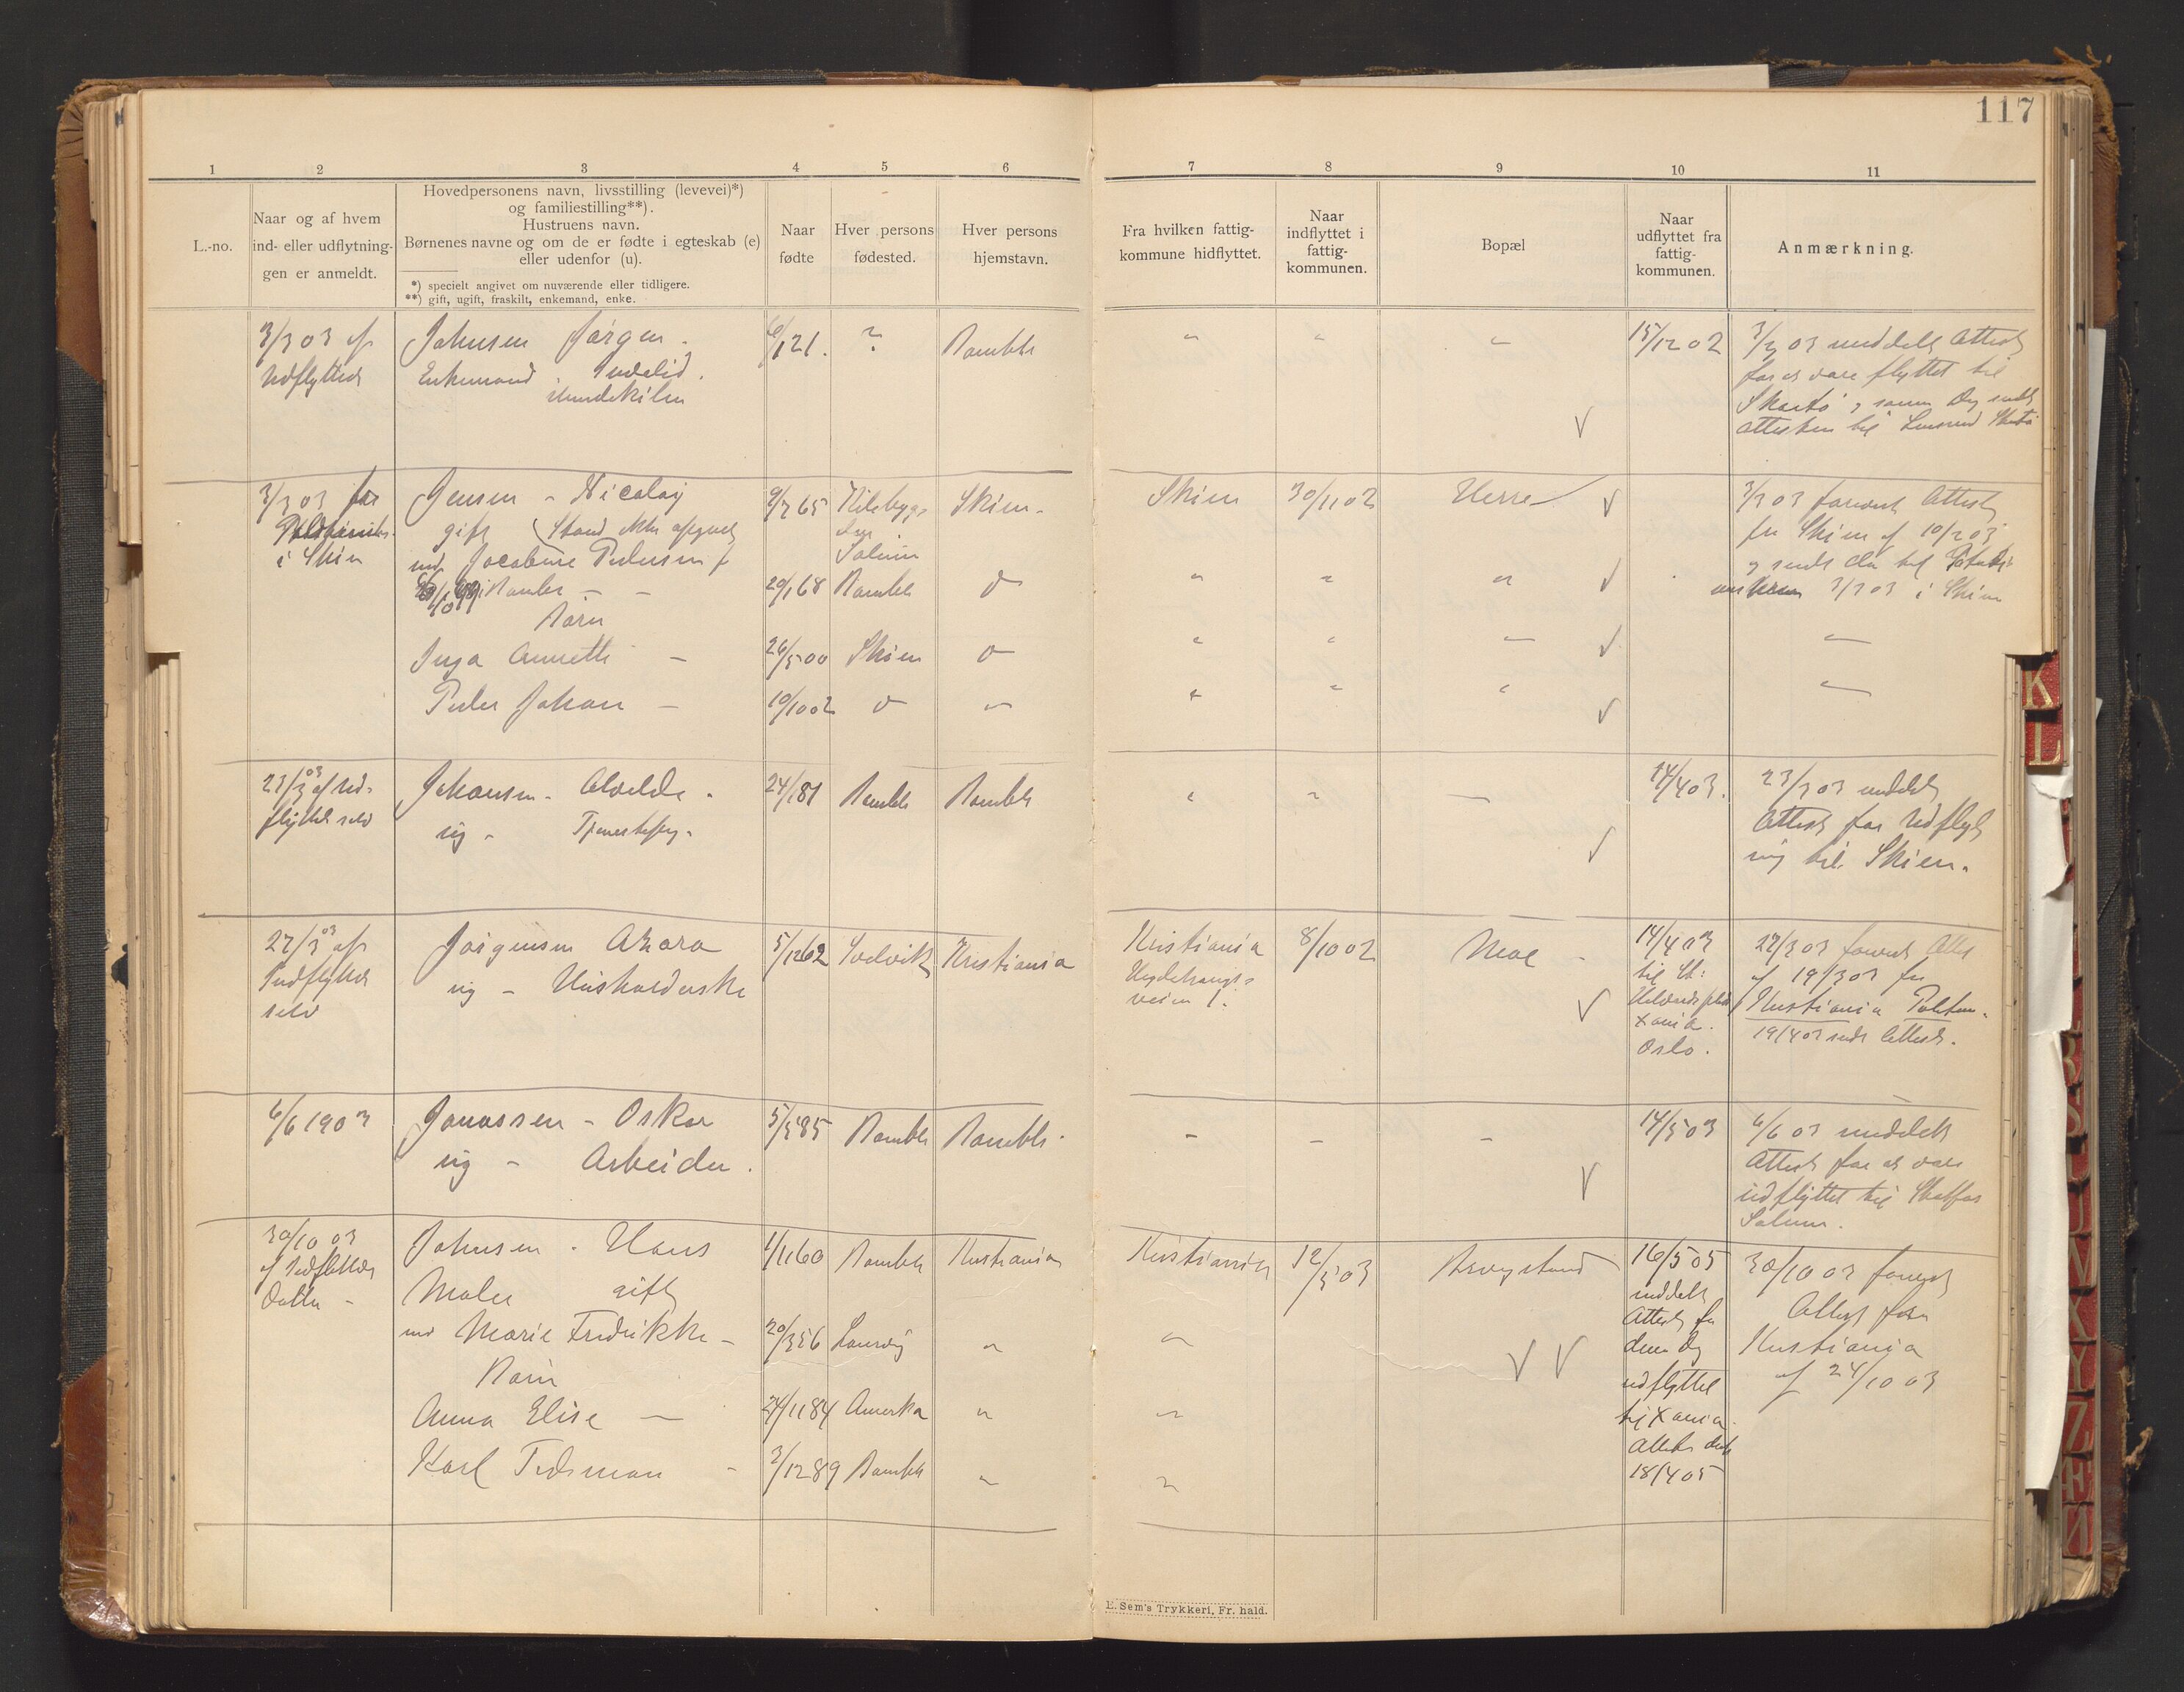 117
1 2 3 4 5 6 7 8 9 10 11
L.-no.
Naar og af hvem
ind- eller udflytnin-
gen er anmeldt.
Hovedpersonens navn, livsstilling (levevei)*)
og familiestilling**).
Hustruens navn.
Børnenes navne og om de er fødte i egteskab (e)
eller udenfor (u).
*) specielt angivet om nuværende eller tidligere.
**) gift, ugift, fraskilt, enkemand, enke.
Naar
fødte
Hver persons
fødested.
Hver persons
hjemstavn.
Fra hvilken fattig-
kommune hidflyttet.
Naar
indflyttet i
fattig-
kommunen.
Bopæl
Naar
udflyttet fra
fattig-
kommunen.
Anmærkning.
3/3 03 af Johnsen Jørgen - 6/1 21. ? Bamble " " " 15/12 02 3/3 03 meddelt Attest
Udflytted Enkemand Indelid. for at være flyttet til
Skaatø og samme Dag sendt
Attesten til
3/3 03 for Jensen - Nicolay 9/7 65 Skien - Skien 30/11 02 Herre 3/3 03 forevist Attest
i Skien gift (Stand ikke opgivet fra Skien af 10/2 03
med Jacobine Pedersen f Solum og sendt
i Bamble - - 29/1 68 Bamble d " " " 3/3 03 i Skien
Børn
Inga Annette - 26/5 00 Skien d " " " "
Peder Johan - 10/10 02 d " " " " "
23/3 03 af Ud- Johansen - Alvilde - 24/1 81 Bamble Bamble " " " 14/4 03. 23/3 03 meddelt
flyttet selv ug - Tjenestepg. Attest for Udflyt
ning til Skien.
27/3 03 af Jørgensen Anora 5/12 62 Kristiania Kristiania 8/10 02 Moe - 14/4 03 27/3 03 forevist Attest
Indflytted ug - Husholderske veien 1. til St: af 19/3 03 fra
selv Xania. Kristiania
Oslo. 19/4 03 sendt Attest.
6/6 1903 Jonassen - Oskar 5/5 85 Bamble Bamble - - - - 14/5 03 6/6 03 meddelt
ug - Arbeider. Attest for at være
udflyttet til
Solum.
30/10 03 Johnsen - Hans 1/11 60 Bamble Kristiania Kristiania 12/5 03 16/5 05 30/10 03 forevist
Maler gift meddelt Attest fra
med Marie Fredrikke - 20/3 56 Laurvig " " Attest for Kristiania
Børn denne Dag af 24/10 03
udflyttet
Anna Elise - 24/11 84 Amerka " " til Xania.
Karl - 3/12 89 Bamble " " Attest
18/4 05
E. Sem's Trykkeri, Fr. hald.
K
L
V
X
Y
Z
Æ
Ø